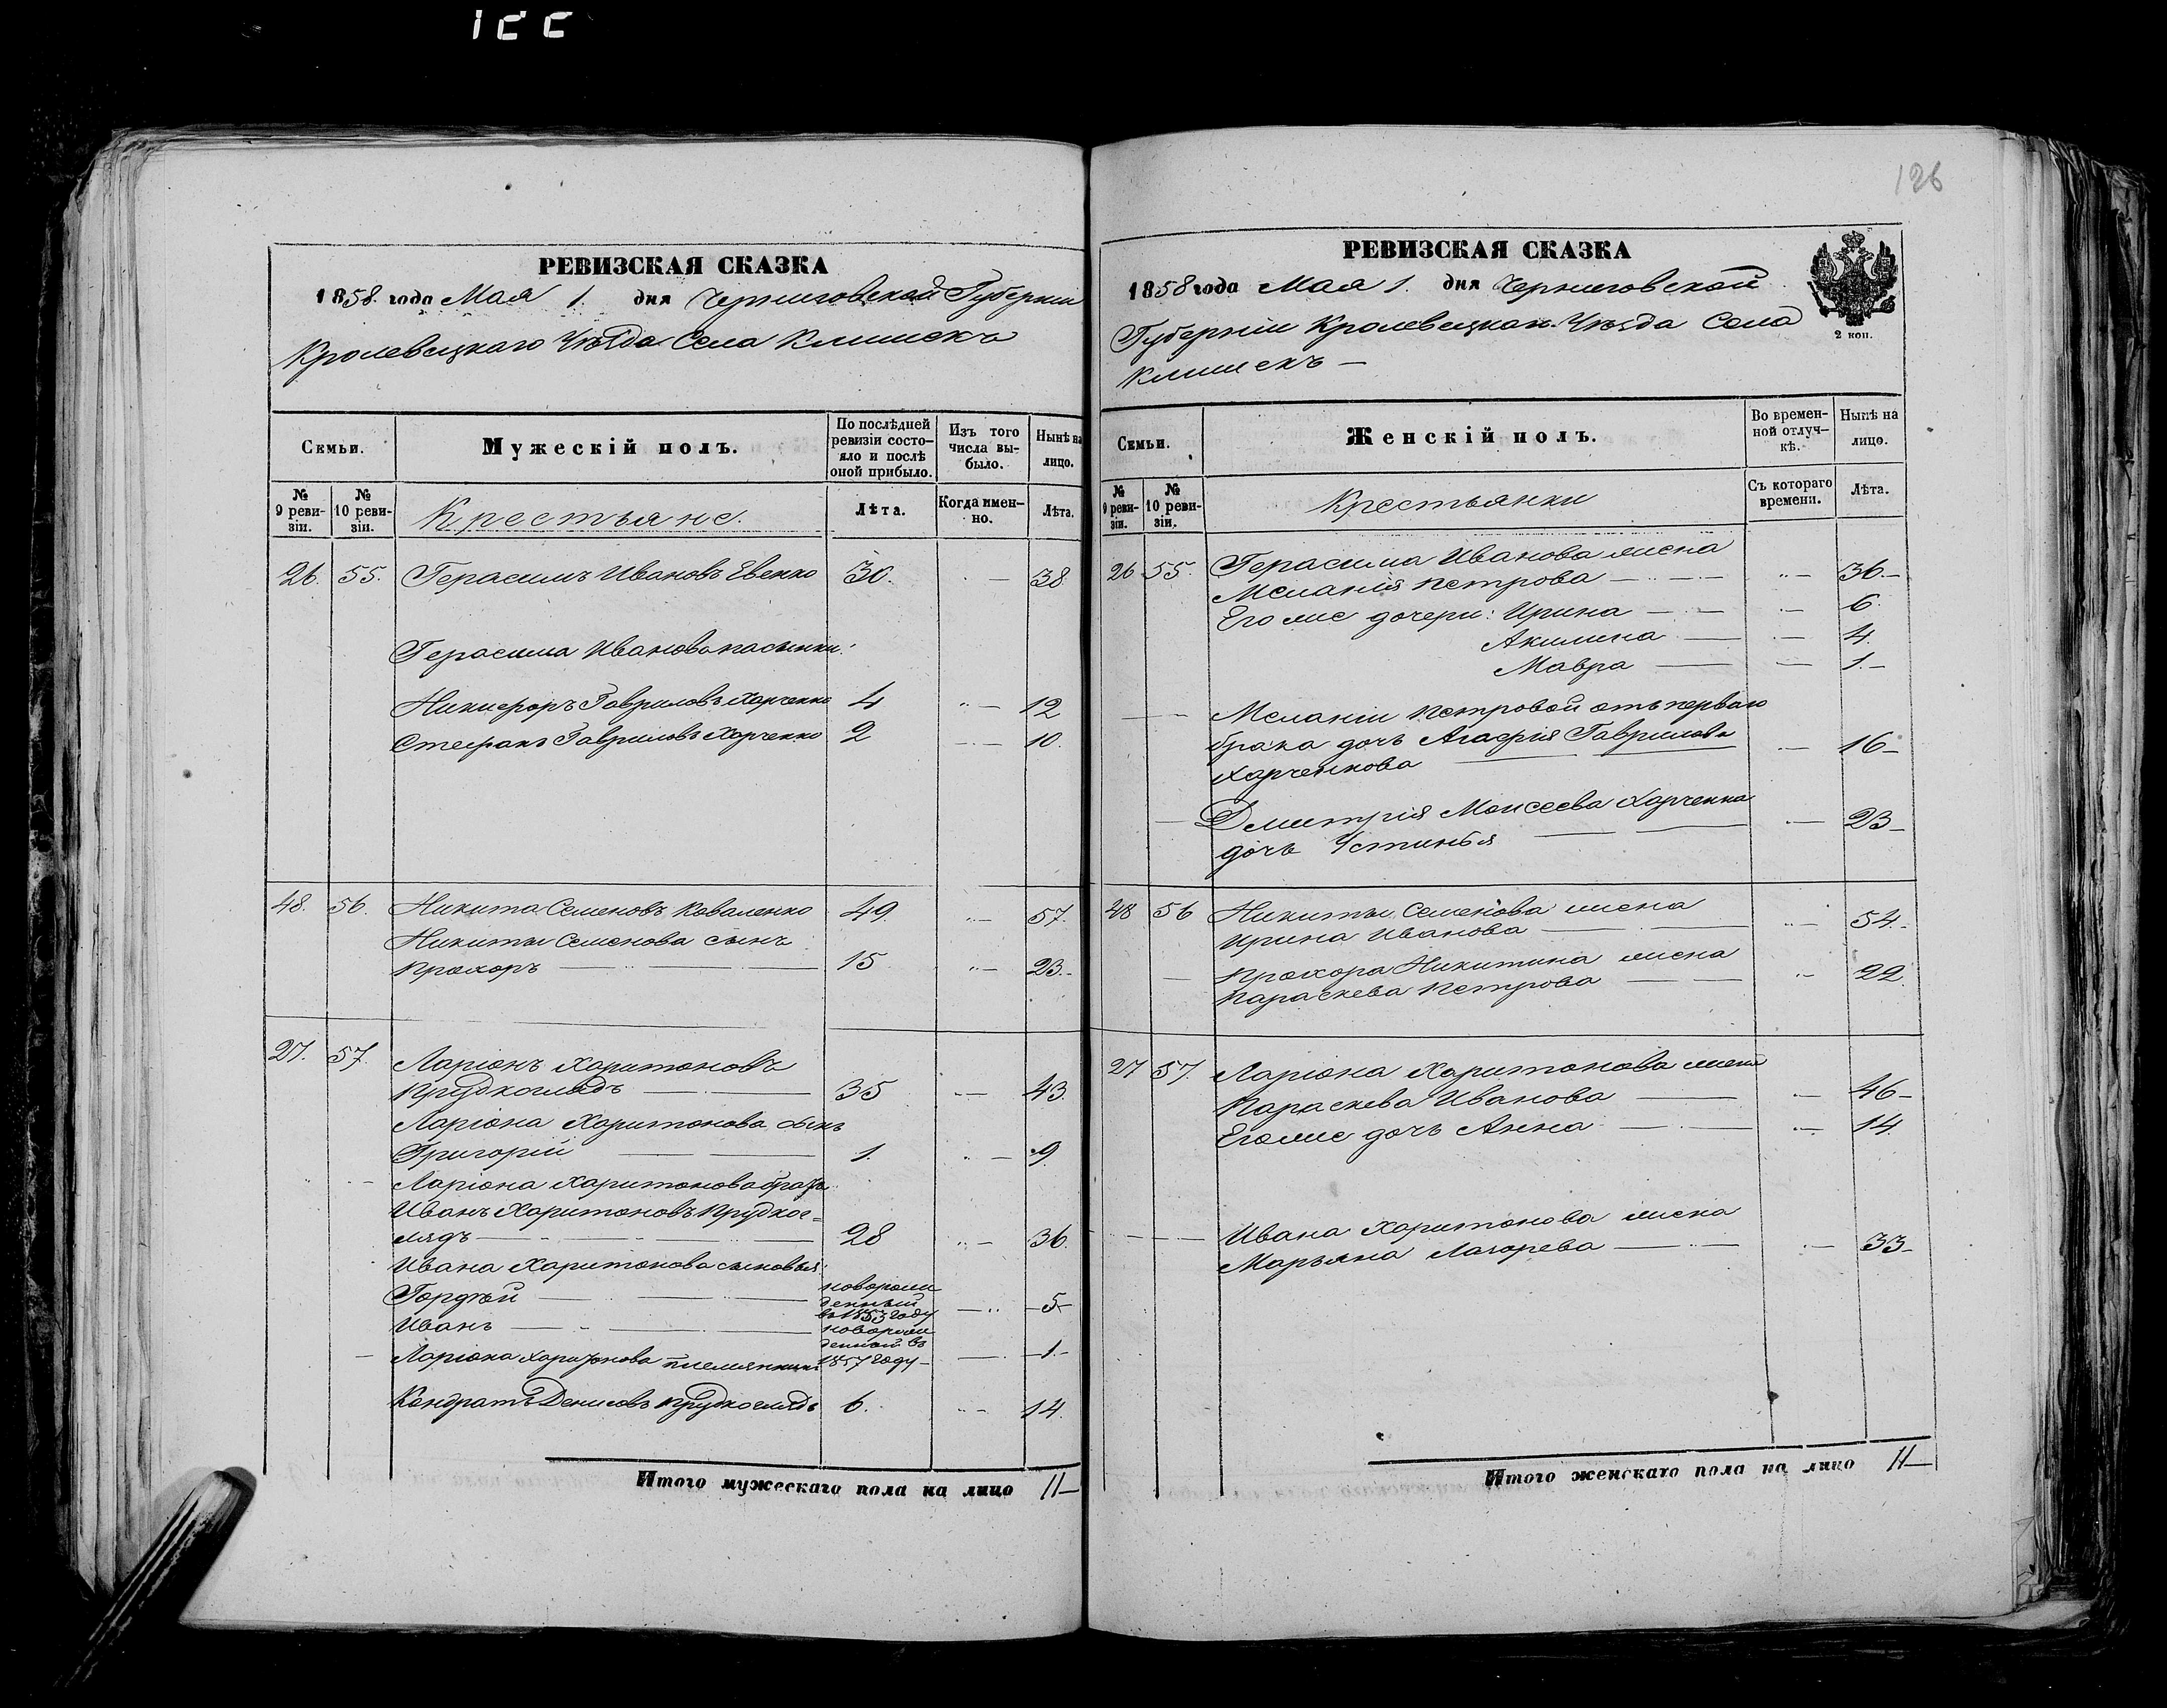 126
РЕВИЗСКАЯ СКАЗКА
1858 года Мая 1. дня Черниговской Губерніи
Кролевецкаго Уѣзда Села Клишекъ
Семьи.
Мужескій полъ.
По послѣдней ревизіи состояло и послѣ оной прибыло.
Изъ того числа выбыло.
Нынѣ на лицо.
№ 9 ревизіи.
№ 10 ревизіи.
Крестьяне.
Лѣта.
Когда именно.
Лѣта.
26. 55. Герасимъ Ивановъ Евенко 30. 38
Герасима Иванова пасынки:
Никифоръ Гавриловъ Харченко 4 12
Стефанъ Гавриловъ Харченко 2 10.
48. 56. Никита Семеновъ Коваленко 49. 57.
Никиты Семенова сынъ
Прохоръ 15 23.
27. 57. Ларіонъ Харитоновъ
Прудкоглядъ 35 43.
Ларіона Харитонова сынъ
Григорій 1. 9.
Ларіона Харитонова братъ
Иванъ Харитоновъ Прудког=
лядъ 28 36.
Ивана Харитонова сыновья:
Гордѣй новорож
денный
въ 1853 году 5
Иванъ новорож
денный въ
1857 году 1
Ларіона Харитонова племянникъ
Кондратъ Денисовъ Прудкоглядъ 6. 14.
Итого мужескаго пола на лицо 11
РЕВИЗСКАЯ СКАЗКА
1858 года Мая 1. дня Черниговской
Губерніи Кролевецкаго Уѣзда Села
Клишекъ
2 коп.
Семьи.
Женскій полъ.
Во временной отлучкѣ.
Нынѣ на лицо.
№ 9 ревизіи.
№ 10 ревизіи.
Крестьянки
Съ котораго времени.
Лѣта.
26 55. Герасима Иванова жена
Меланія Петрова 36
Его же дочери: Ирина 6.
Акилина 4.
Мавра 1.
Меланіи Петровой отъ перваго
брака дочь Агафія Гаврилова
Харченкова 16
Дмитрія Моисеева Харченка
дочь Устинья 23
48 56 Никиты Семенова жена
Ирина Иванова 54.
Прохора Никитина жена
Параскева Петрова 22
27 57. Ларіона Харитонова жена
Параскева Иванова 46
Его же дочь Анна 14.
Ивана Харитонова жена
Марьяна Лазорева 33
Итого женскаго пола на лицо 11